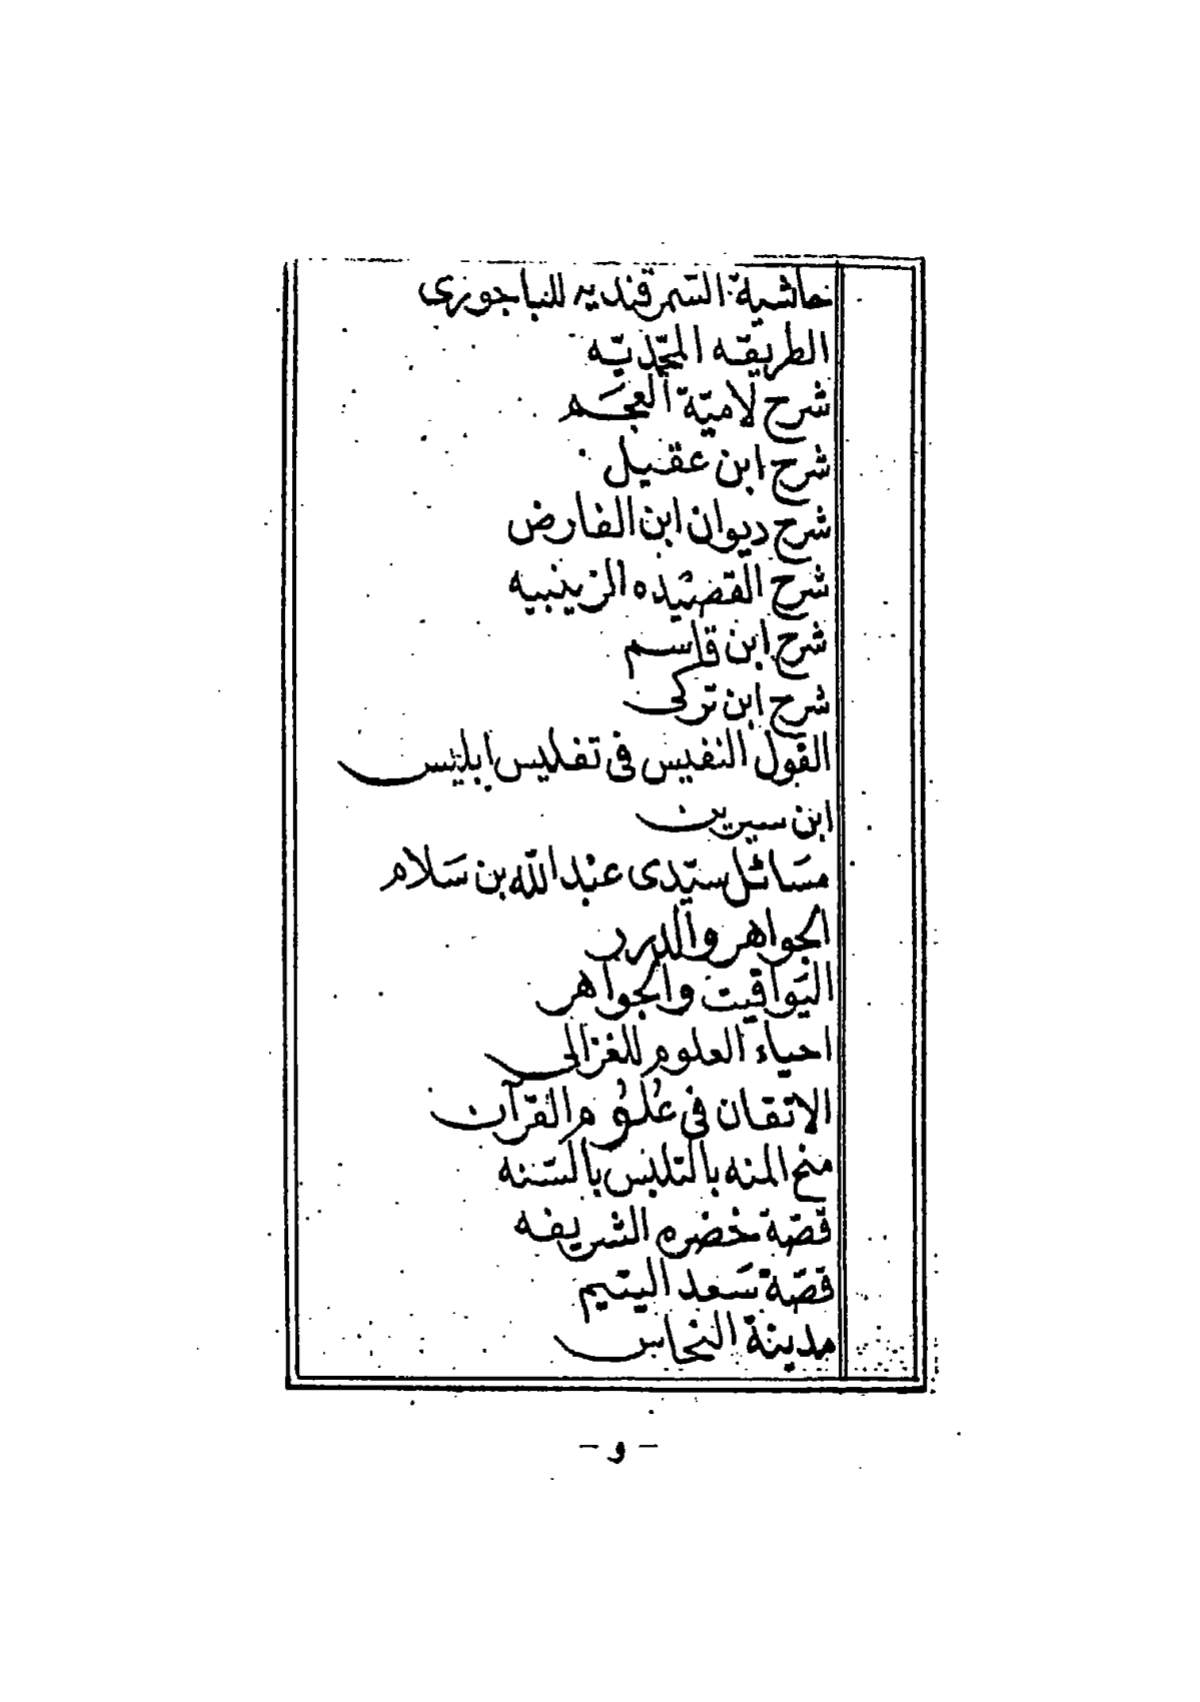 حاشية السمرقنديه للباجوزى
الطريقه المحّمديّه
شرح لاميّة العجَم
شرح ابن عقيل
شرح ديوان ابن الفارض
شرح القصيده الزينبيه
شرح ابن قاسم
شرح ابن تركى
القول النفيس فى تفليس ابليس
ابن سيرين
مسَائل سيّدى عبْد اللّه بن سَلام
الجواهر والدرر
اليَواقيت والجواهر
احياء العلوم للغزالى
الاتقان فى عُلوُم القرآن
منح المنه بالتلبس بالسّنه
قصّة خضره الشريفه
قصّة سَعد اليتيم
مدينة النحاس
– و –